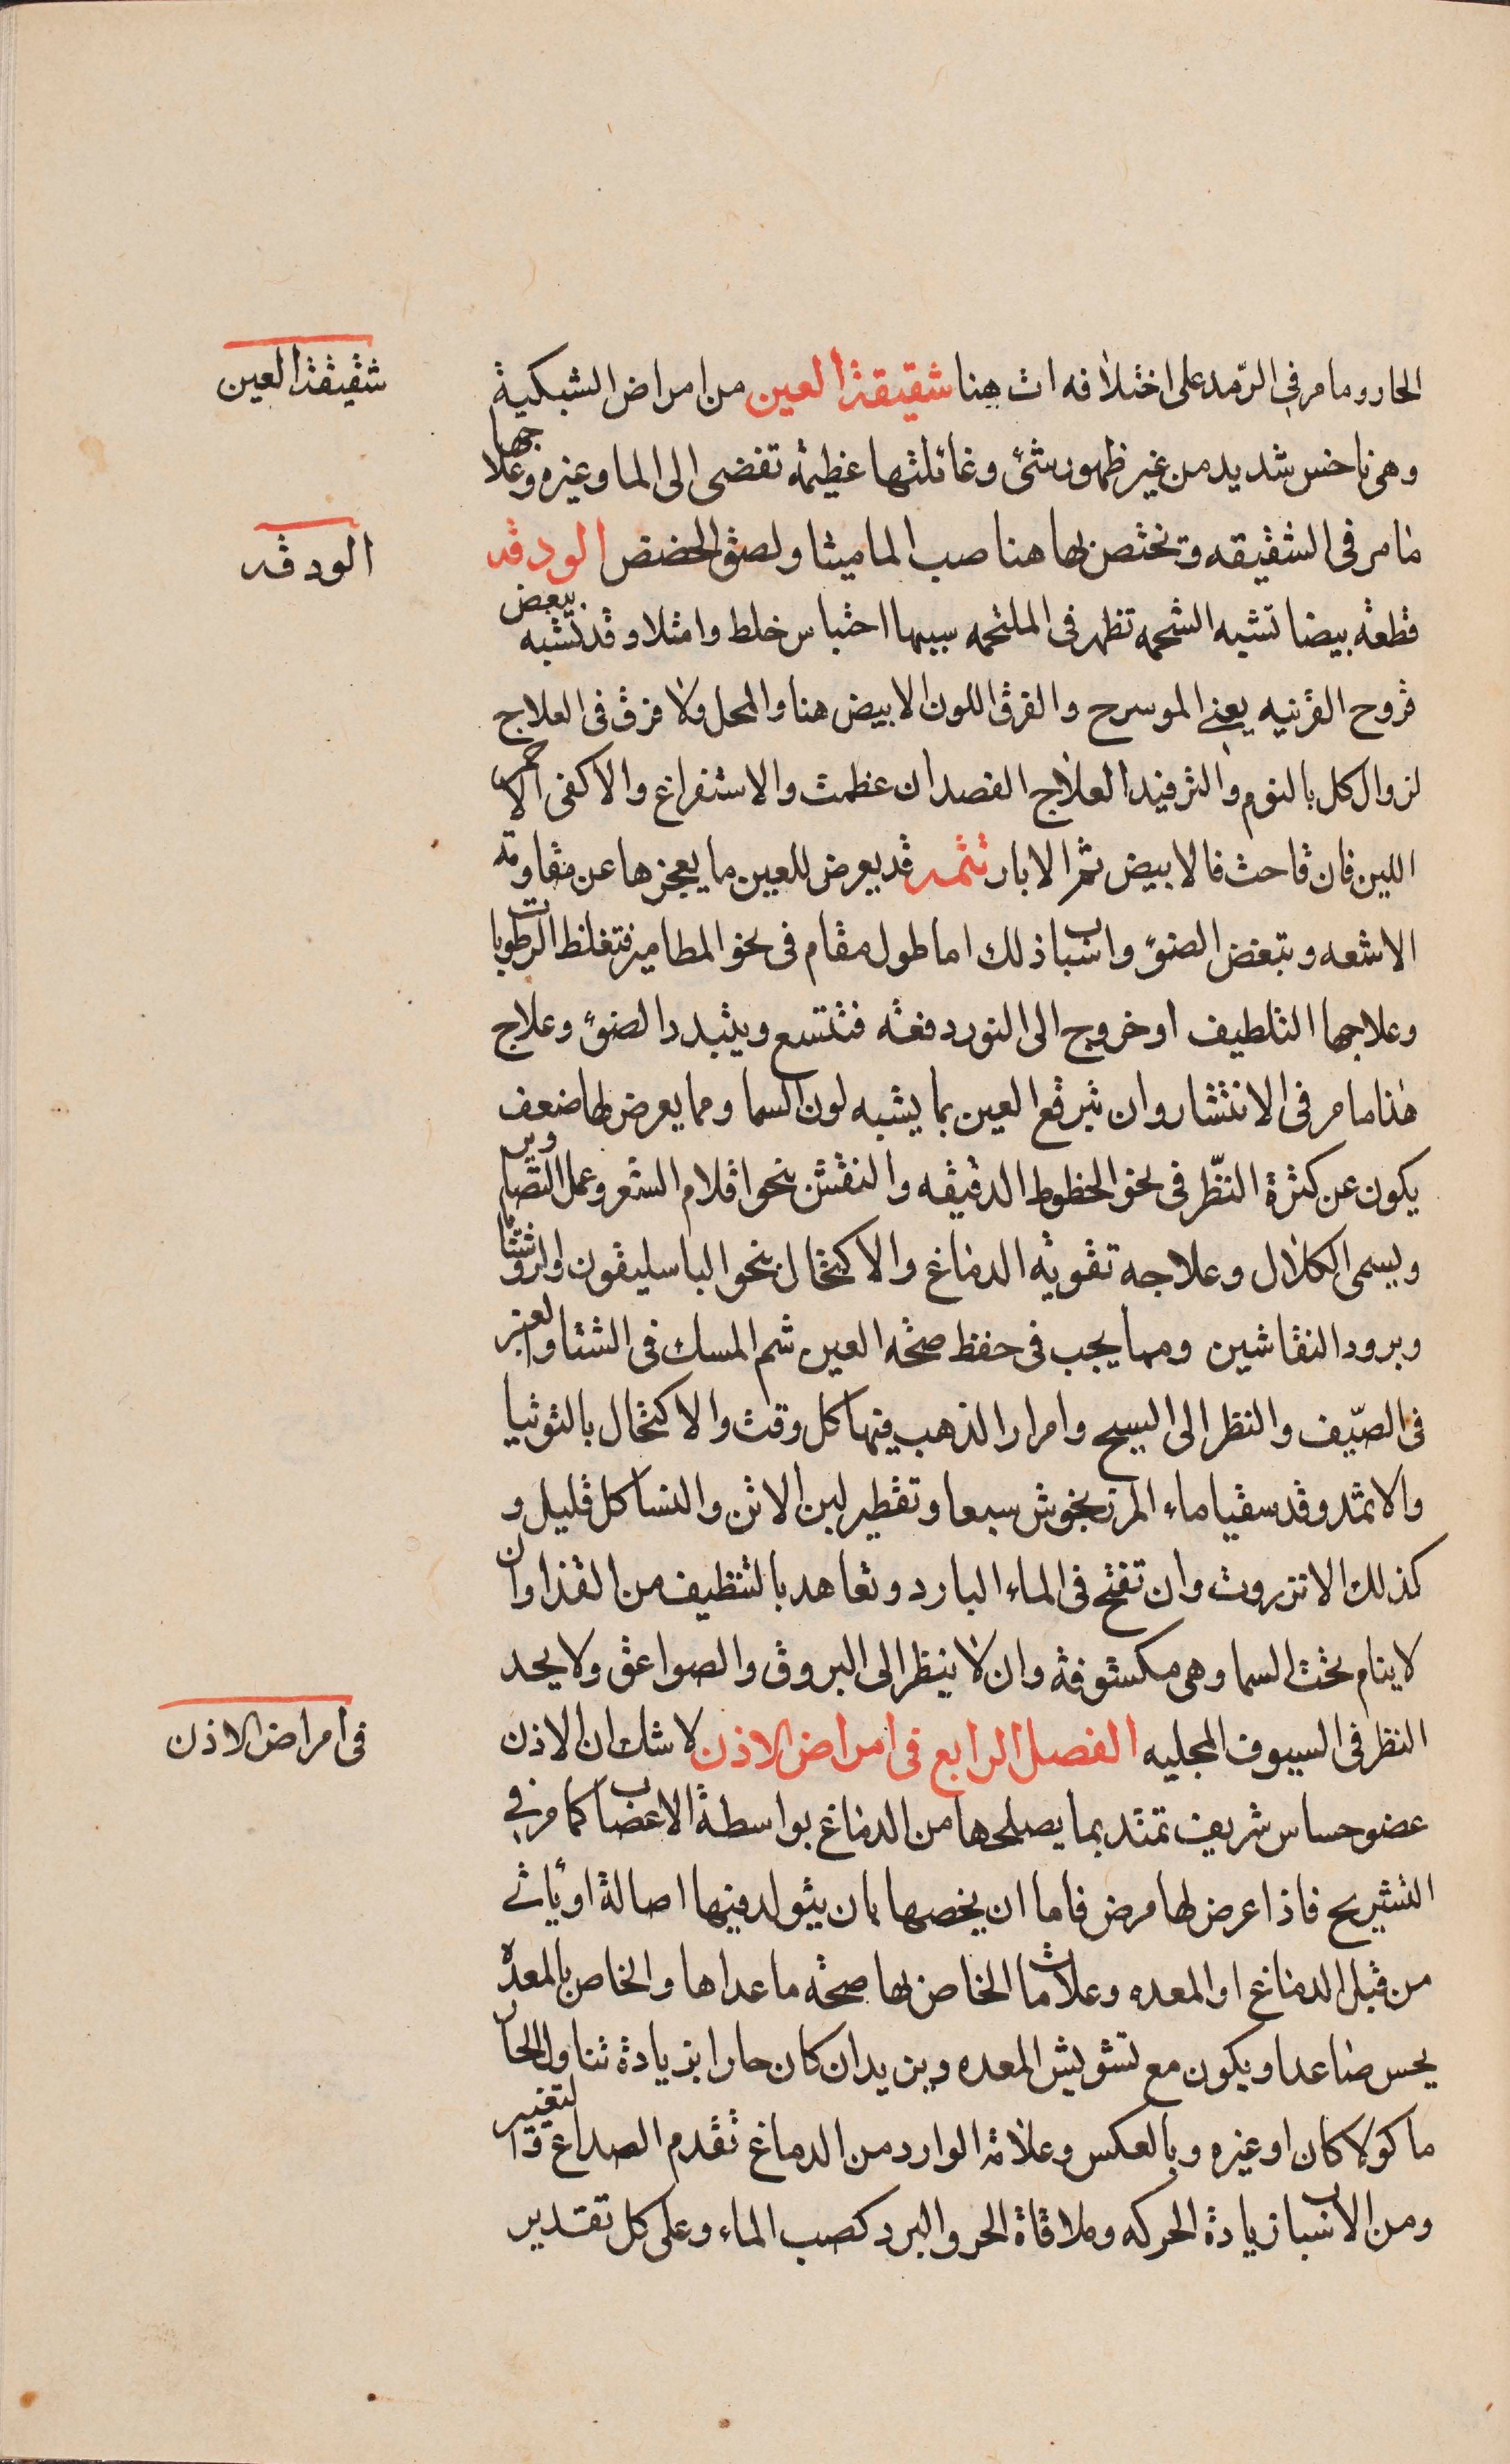 الحار وما مر في الرّمد على اختلافه ات هنا شقيقة العين من امراض الشبكية
شقيقة العين
وهى ناخس شديد من غير ظهور شئ وغائلتها عظيمة تفضى الى الما وغيره وعلاجها
ما مر فى الشقيقه وتختص بها هنا صب الماميثا ولصق الحضض الودقه
الودقه
قطعة بيضا تشبه الشحمه تظهر فى الملتحمه سببها احتباس خلط وامتلا وقد تشبه ببعض
قروح القرنيه يعنى الموسرح والفرق اللون الابيض هنا والمحل ولا فرق فى العلاج
لزوال كل بالنوم والترفيد العلاج الفصد ان عظمت والاستفراغ والا كفى الاحمر
اللين فان قاحت فالابيض ثم الابار تتمه قد يعرض للعين ما يعجزها عن مقاومة
الاشعه وتبغض الضوء واسباب ذلك اما طول مقام فى نحو المطامير فتغلظ الرطوبات
وعلاجها التلطيف او خروج الى النور دفعة فتتسع ويتبدد الضوء وعلاج
هذا ما مر فى الانتشار وان تبرقع العين بما يشبه لون السما ومما يعرض لها ضعف
يكون عن كثرة النّظر فى نحو الخطوط الدقيقه والنقش بنحو اقلام الشعر وعمل التصاوير
ويسمى الكلال وعلاجه تقوية الدماغ والاكتحال بنحو الباسليقون والروشنايا
وبرود النقاشين ومما يجب فى حفظ صحة العين شم المسك فى الشتا والعنبر
فى الصّيف والنظر الى السبح وامرار الذهب فيها كل وقت والاكتحال بالتوتيا
والاثمد وقد سقيا ماء المرزنجوش سبعا وتقطير لبن الاتن والنسا كل قليل و
كذلك الانزروت وان تفتح فى الماء البارد وتعاهد بالتنظيف من القذا وان
لا ينام تحت السما وهى مكشوفة وان لا ينظر الى البروق والصواعق ولا يحد
النظر فى السيوف المجليه الفصل الرابع فى امراض الاذن لا شك ان الاذن
فى امراض الاذن
عضو حساس شريف تمتد بما يصلحها من الدماغ بواسطة الاعصاب كما مر في
التشريح فاذا عرض لها مرض فاما ان يخصها بان يتولد فيها اصالة او يأتى
من قبل الدماغ او المعده وعلامات الخاص بها صحة ما عداها والخاص بالمعده
يحس صاعدا ويكون مع تشويش المعده ويزيد ان كان حارا بزيادة تناول الحار
ماكولا كان او غيره وبالعكس وعلامة الوارد من الدماغ تقدم الصداع والتغير
ومن الاسباب زيادة الحركه وملاقاة الحر والبرد كصب الماء وعلى كل تقدير